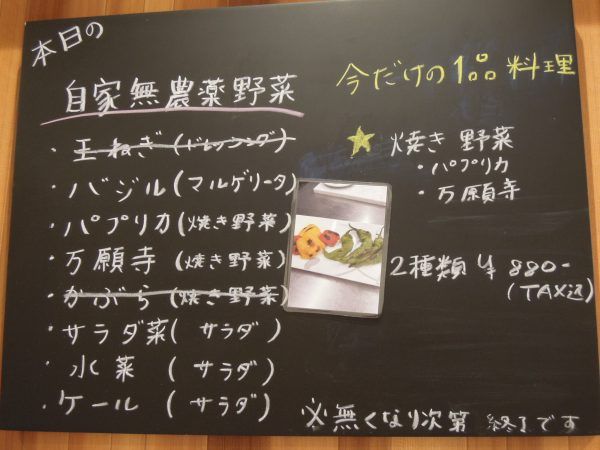 本日の
自家無農薬野菜
・玉ねぎ(ドレッシング)
・バジル(マルゲリータ)
・パプリカ(焼き野菜)
・万願寺(焼き野菜)
・かぶら(焼き野菜)
・サラダ菜(サラダ)
・水菜(サラダ)
・ケール(サラダ)
今だけの1品料理
★焼き野菜
・パプリカ
・万願寺
2種類¥880-
(TAX込)
※無くなり次第終了です